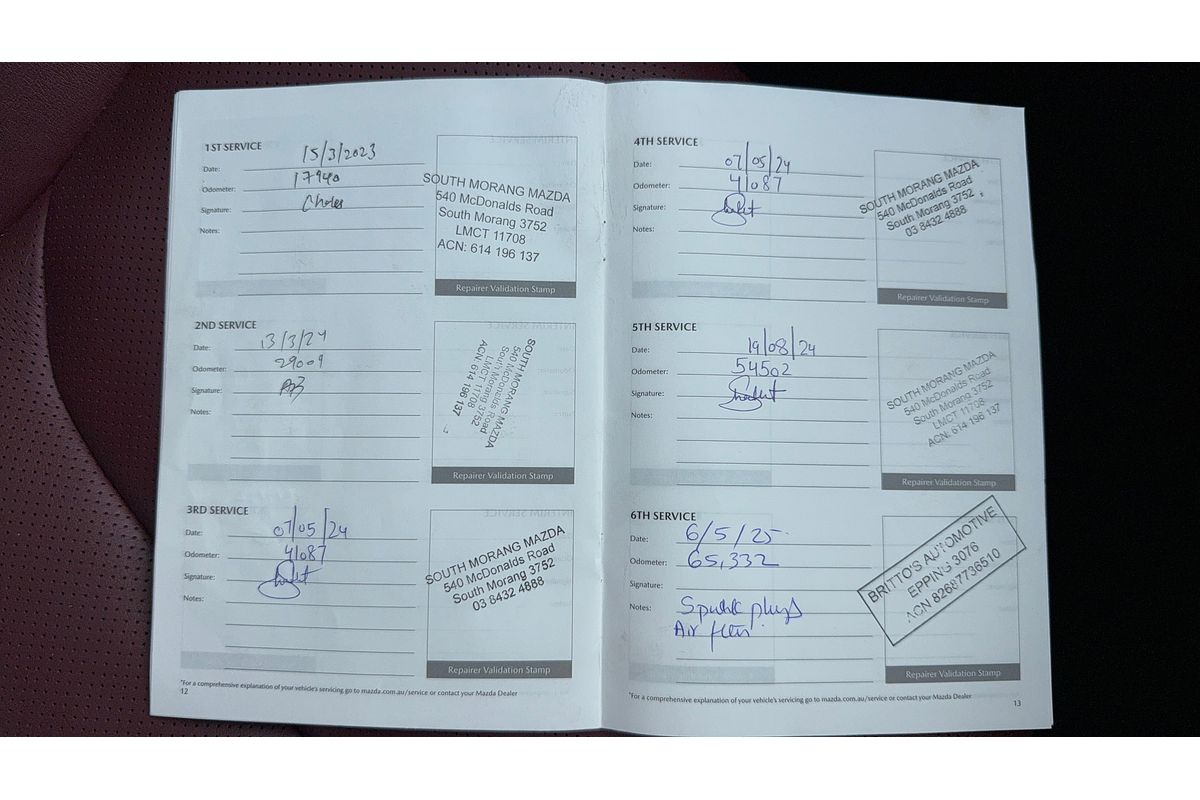 1ST SERVICE
Date: 15/3/2023
Odometer: 17940
Signature:
Notes:
SOUTH MORANG MAZDA
540 McDonalds Road
South Morang 3752
LMCT 11708
ACN: 614 196 137
Repairer Validation Stamp
2ND SERVICE
Date: 13/3/24
Odometer: 29009
Signature:
Notes:
SOUTH MORANG MAZDA
540 McDonalds Road
South Morang 3752
LMCT 11708
ACN: 614 196 137
Repairer Validation Stamp
3RD SERVICE
Date: 07/05/24
Odometer: 41087
Signature:
Notes:
SOUTH MORANG MAZDA
540 McDonalds Road
South Morang 3752
03 8432 4888
Repairer Validation Stamp
*For a comprehensive explanation of your vehicle's servicing go to mazda.com.au/service or contact your Mazda Dealer
12
4TH SERVICE
Date: 07/05/24
Odometer: 41087
Signature:
Notes:
SOUTH MORANG MAZDA
540 McDonalds Road
South Morang 3752
03 8432 4888
Repairer Validation Stamp
5TH SERVICE
Date: 19/08/24
Odometer: 54502
Signature:
Notes:
SOUTH MORANG MAZDA
540 McDonalds Road
South Morang 3752
LMCT 11708
ACN: 614 196 137
Repairer Validation Stamp
6TH SERVICE
Date: 6/5/25
Odometer: 65,332
Signature:
Notes: Spark plugs
Air
BRITTO'S AUTOMOTIVE
EPPING 3076
ACN 82687736510
Repairer Validation Stamp
*For a comprehensive explanation of your vehicle's servicing go to mazda.com.au/service or contact your Mazda Dealer
13